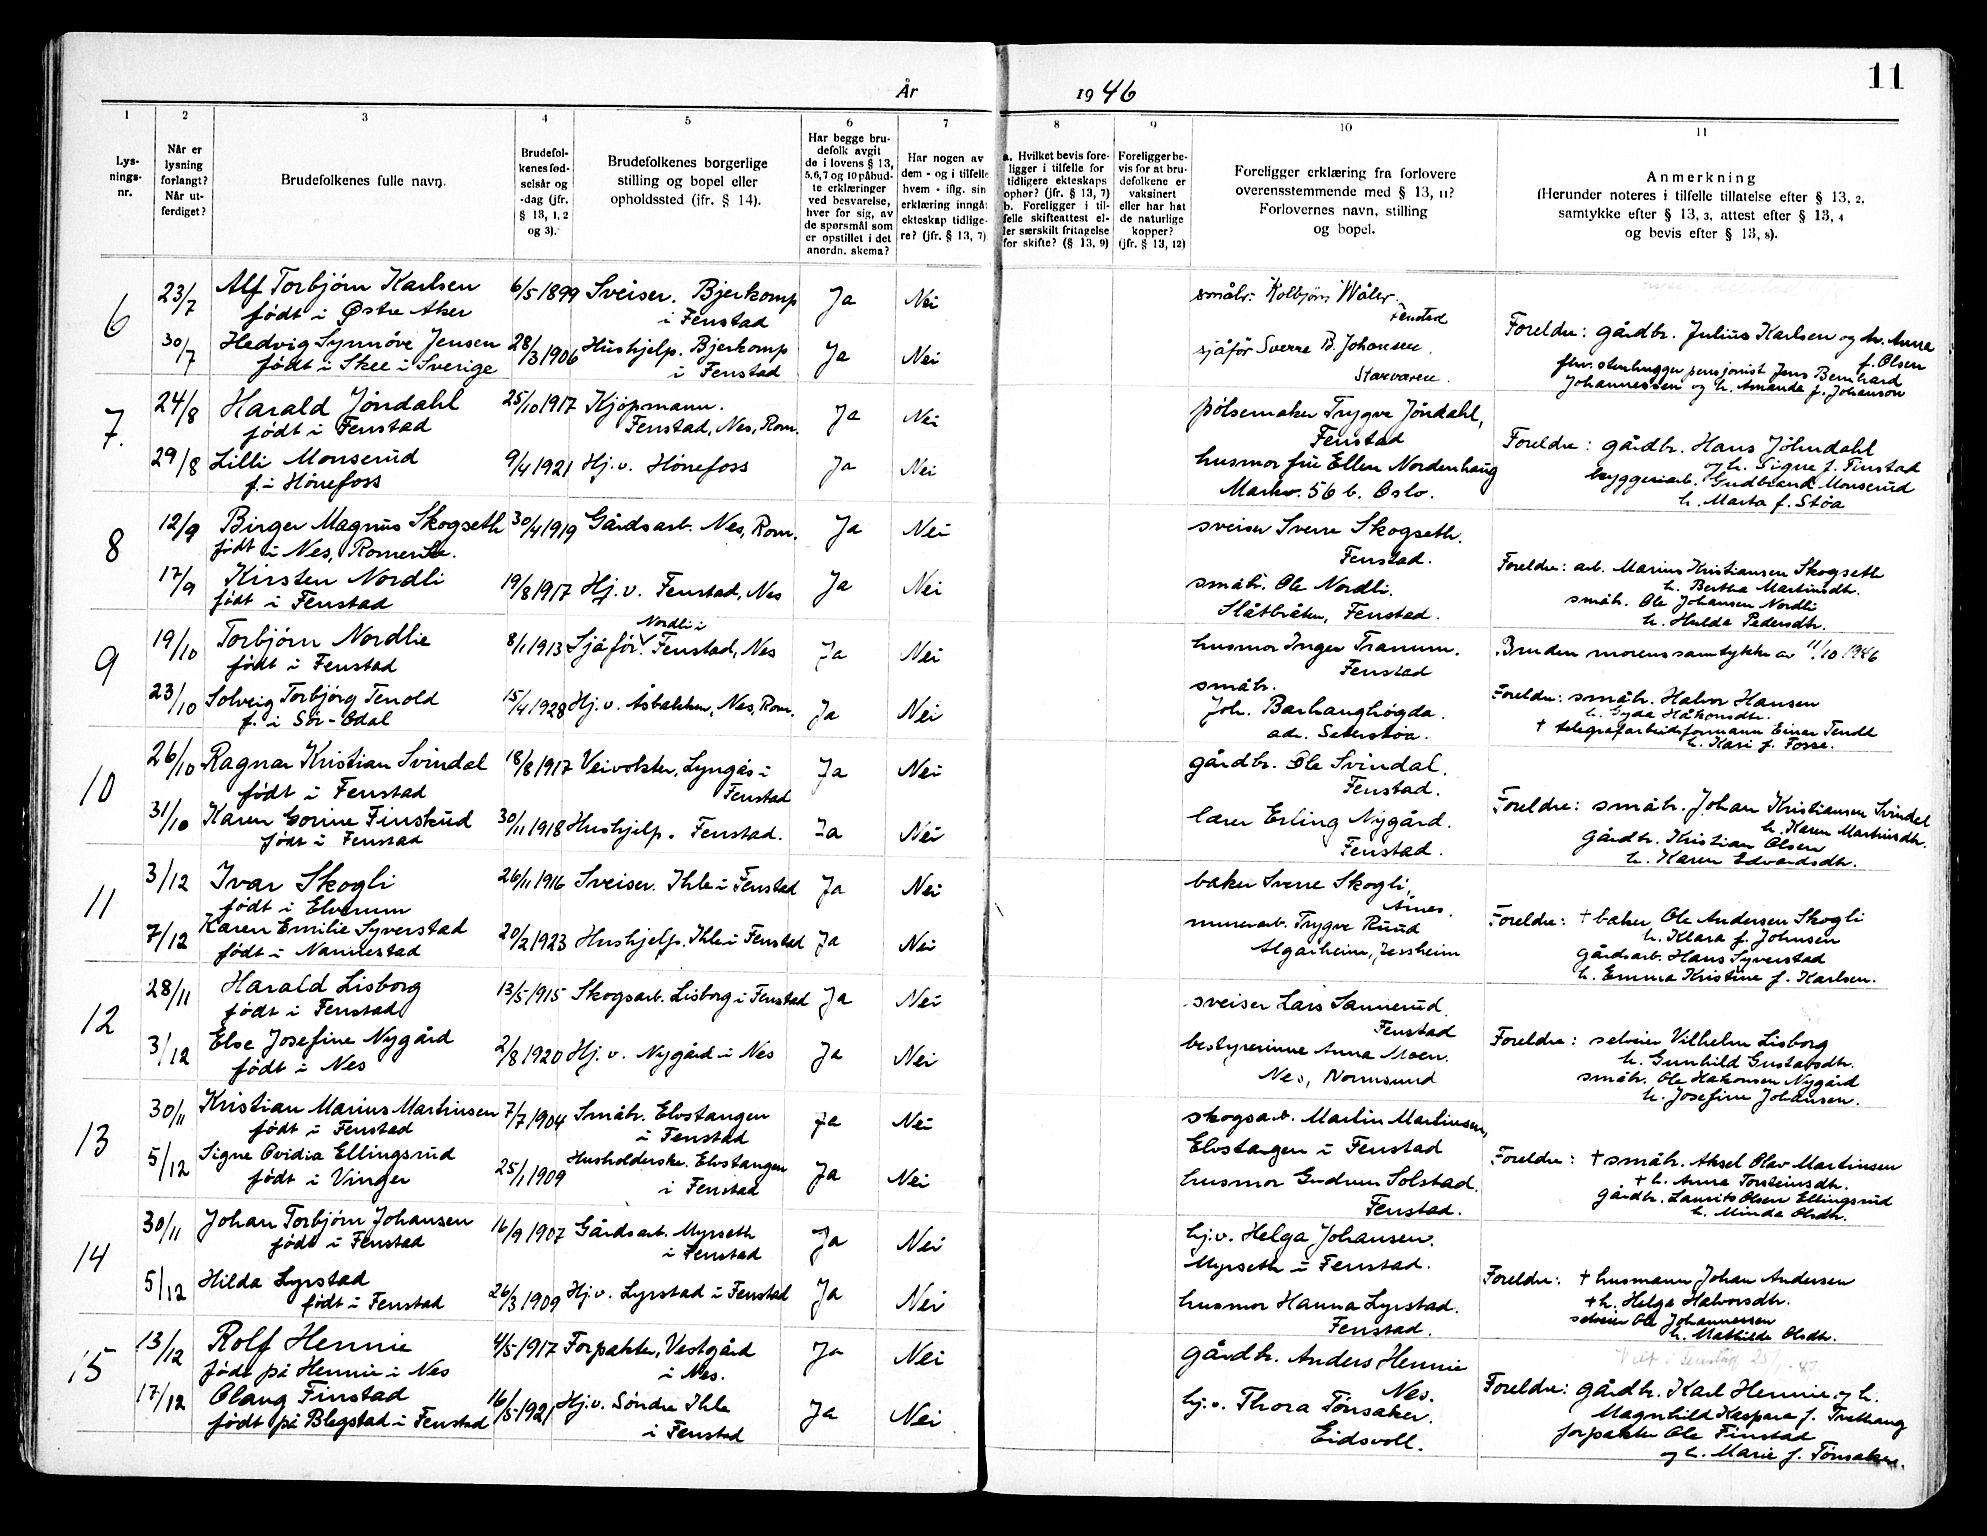 År 1946
11
1
2
3
4
5
6
7
8
9
10
11
Lys-
nings-
nr.
Når er
lysning
forlangt?
Når ut-
ferdiget?
Brudefolkenes fulle navn.
Brudefol-
kenes fød-
selsår og
-dag (jfr.
§ 13, 1, 2
og 3).
Brudefolkenes borgerlige
stilling og bopel eller
opholdssted (jfr. § 14).
Har begge bru-
defolk avgit
de i lovens § 13,
5, 6, 7 og 10 påbud-
te erklæringer
ved besvarelse,
hver for sig, av
de spørsmål som
er opstillet i det
anordn. skema?
Har nogen av
dem - og i tilfelle
hvem - iflg. sin
erklæring inngått
ekteskap tidlige-
re? (jfr. § 13, 7)
a. Hvilket bevis fore-
ligger i tilfelle for
tidligere ekteskaps
ophør? (jfr. § 13, 7)
b. Foreligger i til-
felle skifteattest el-
ler særskilt fritagelse
for skifte? (§ 13, 9)
Foreligger be-
vis for at bru-
defolkene er
vaksinert
eller har hat
de naturlige
kopper?
(jfr. § 13, 12)
Foreligger erklæring fra forlovere
overensstemmende med § 13, 11?
Forlovernes navn, stilling
og bopel.
Anmerkning
(Herunder noteres i tilfelle tillatelse efter § 13, 2,
samtykke efter § 13, 3, attest efter § 13, 4
og bevis efter § 13, 8).
6
23/7 Alf Torbjørn Karlsen 6/5 1899 Sveiser. Bjerkomp Ja Nei småbr. Kolbjørn Wåler.
født i Østre Aker i Fenstad Fenstad
30/7 Hedvig Synnøve Jensen 28/3 1906 Hushjelp. Bjerkomp Ja Nei sjåfør Sverre B. Johansen. Foreldre: gårdbr. Julius Karlsen og h. Anna
født i Skee i Sverige i Fenstad f. Olsen
fhv. stenhugger pensjonist Jens Bernhard
Johannessen og h. Amanda f. Johanson
7.
24/8 Harald Jøndahl 25/10 1917 Kjøpmann. Ja Nei pølsemaker Trygve Jøndahl,
født i Fenstad Fenstad, Nes, Rom. Fenstad
29/8 Lilli Monserud 9/4 1921 Hj.v. Hønefoss Ja Nei husmor frue Ellen Nordenhaug Foreldre: gårdbr. Hans Jøhndahl
f. i Hønefoss Markv. 56 b. Oslo. og h. Signe f. Finstad
byggeriarb. Gudbrand Monserud
h. Marta f. Støa
8
12/9 Birger Magnus Skogseth 30/4 1919 Gårdsarb. Nes, Rom. Ja Nei sveiser Sverre Skogseth.
født i Nes, Romerike. Fenstad.
17/9 Kirsten Nordli 19/8 1917 Hj.v. Fenstad, Nes Ja Nei småbr. Ole Nordli. Foreldre: arb. Marius Kristiansen Skogseth
født i Fenstad Slåtbråten, Fenstad. h. Bertha Martinsdtr.
småbr. Ole Johansen Nordli
h. Hulda Pedersdtr.
9
19/10 Torbjørn Nordlie 8/1 1913 Sjåfør. Nordli i Fenstad, Nes Ja Nei husmor Inger Tranum. Bruden morens samtykke av 11/10 1946
født i Fenstad Fenstad
23/10 Solveig Torbjørg Tenold 15/4 1928 Hj.v. Åsbakken, Nes, Rom. Ja Nei småbr. Foreldre: småbr. Halvor Hansen
f. i Sør-Odal Joh. Barhaughøgda. h. Gyda Håkonsdtr.
adr. Seterstøa. + telegrafarbeidsformann Einar Tenold
h. Kari f. Fosse.
10
26/10 Ragnar Kristian Svindal 18/8 1917 Veivokter, Lyngås i Ja Nei gårdbr. Ole Svindal.
født i Fenstad Fenstad Fenstad.
31/10 Karen Gorine Finskud 30/11 1918 Hushjelp. Fenstad. Ja Nei lærer Erling Nygård. Foreldre: småbr. Johan Kristiansen Svindal
født i Fenstad Fenstad. h. Karen Martinsdtr.
gårdbr. Kristian Olsen
h. Karen Edvardsdtr.
11
3/12 Ivar Skogli 26/11 1916 Sveiser. Ihle i Fenstad Ja Nei baker Sverre Skogli,
født i Elverum Årnes.
7/12 Karen Emilie Syverstad 20/2 1923 Hushjelp. Ihle i Fenstad Ja Nei murerarb. Trygve Ruud Foreldre: + baker Ole Andersen Skogli
født i Nannestad Algarheim, Jessheim h. Klara f. Johnsen
gårdsarb. Hans Syverstad
h. Emma Kristine f. Karlsen.
12
28/11 Harald Lisborg 13/5 1915 Skogsarb. Lisborg i Fenstad Ja Nei sveiser Lars Sannerud.
født i Fenstad Fenstad
3/12 Else Josefine Nygård 2/8 1920 Hj.v. Nygård i Nes Ja Nei bestyrerinne Anna Moen. Foreldre: selveier Vilhelm Lisborg
født i Nes Nes, Normsund h. Gunhild Gustavsdtr.
småbr. Ole Hakonsen Nygård
h. Josefine Johansen.
13
30/11 Kristian Marius Martinsen 7/7 1904 Småbr. Elvstangen Ja Nei skogsarb. Martin Martinsen,
født i Fenstad i Fenstad Elvstangen i Fenstad
5/12 Signe Ovidia Ellingsrud 25/1 1909 Husholderske. Elvstangen Ja Nei husmor Gudrun Solstad. Foreldre: + småbr. Aksel Olav Martinsen
født i Vinger i Fenstad Fenstad. + h. Anna Torsteinsdtr.
gårdbr. Laurits Olsen Ellingsrud
h. Minda Olsdtr.
14
30/11 Johan Torbjørn Johansen 16/9 1907 Gårdsarb. Myrseth Ja Nei hj.v. Helga Johansen.
født i Fenstad i Fenstad Myrseth i Fenstad.
5/12 Hilda Lyrstad 26/3 1909 Hj.v. Lyrstad i Fenstad Ja Nei husmor Hanna Lyrstad. Foreldre: + husmann Johan Andersen
født i Fenstad Fenstad. + h. Helga Halvorsdtr.
selveier Ole Johannessen
h. Mathilde Olsdtr.
15
13/12 Rolf Hennie 4/5 1917 Forpakter, Vestgård Ja Nei gårdbr. Anders Hennie
født på Hennie i Nes i Nes. Nes.
17/12 Olaug Finstad 16/5 1921 Hj.v. Søndre Ihle Ja Nei hj.v. Thora Tønsaker. Foreldre: gårdbr. Karl Hennie og h.
født på Blegstad i Fenstad i Fenstad Eidsvoll. Magnhild Kaspara f. Trethaug
forpakter Ole Finstad
og h. Marie f. Tønsaker.